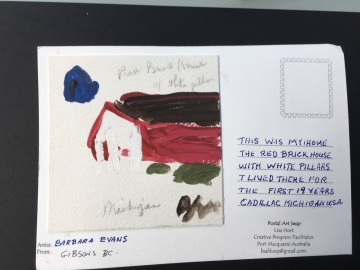 Red Brick House
w/ white pillars
Michigan
THIS WAS MY HOME
THE RED BRICK HOUSE
WITH WHITE PILLARS
I LIVED THERE FOR
THE FIRST 19 YEARS
CADILLAC MICHIGAN USA.
Postal Art Swap
Lisa Hort
Creative Program Facilitator
Port Macquarie Australia
Artist: BARBARA EVANS
From: GIBSONS BC.